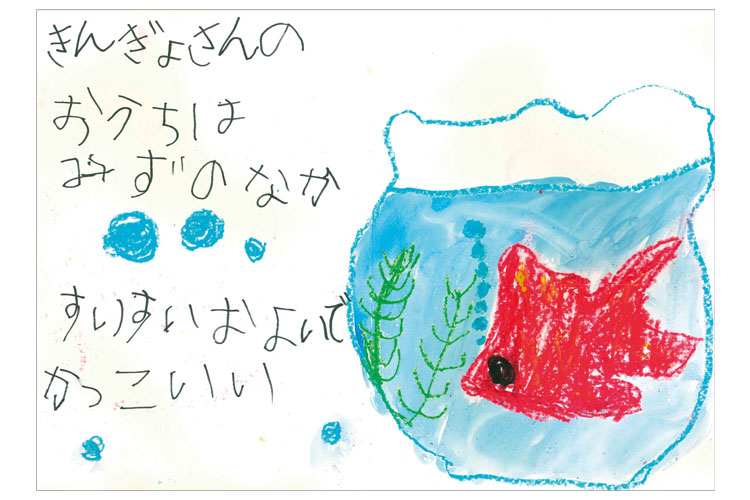 きんぎょさんの
おうちは
みずのなか
すいすいおよいで
かっこいい